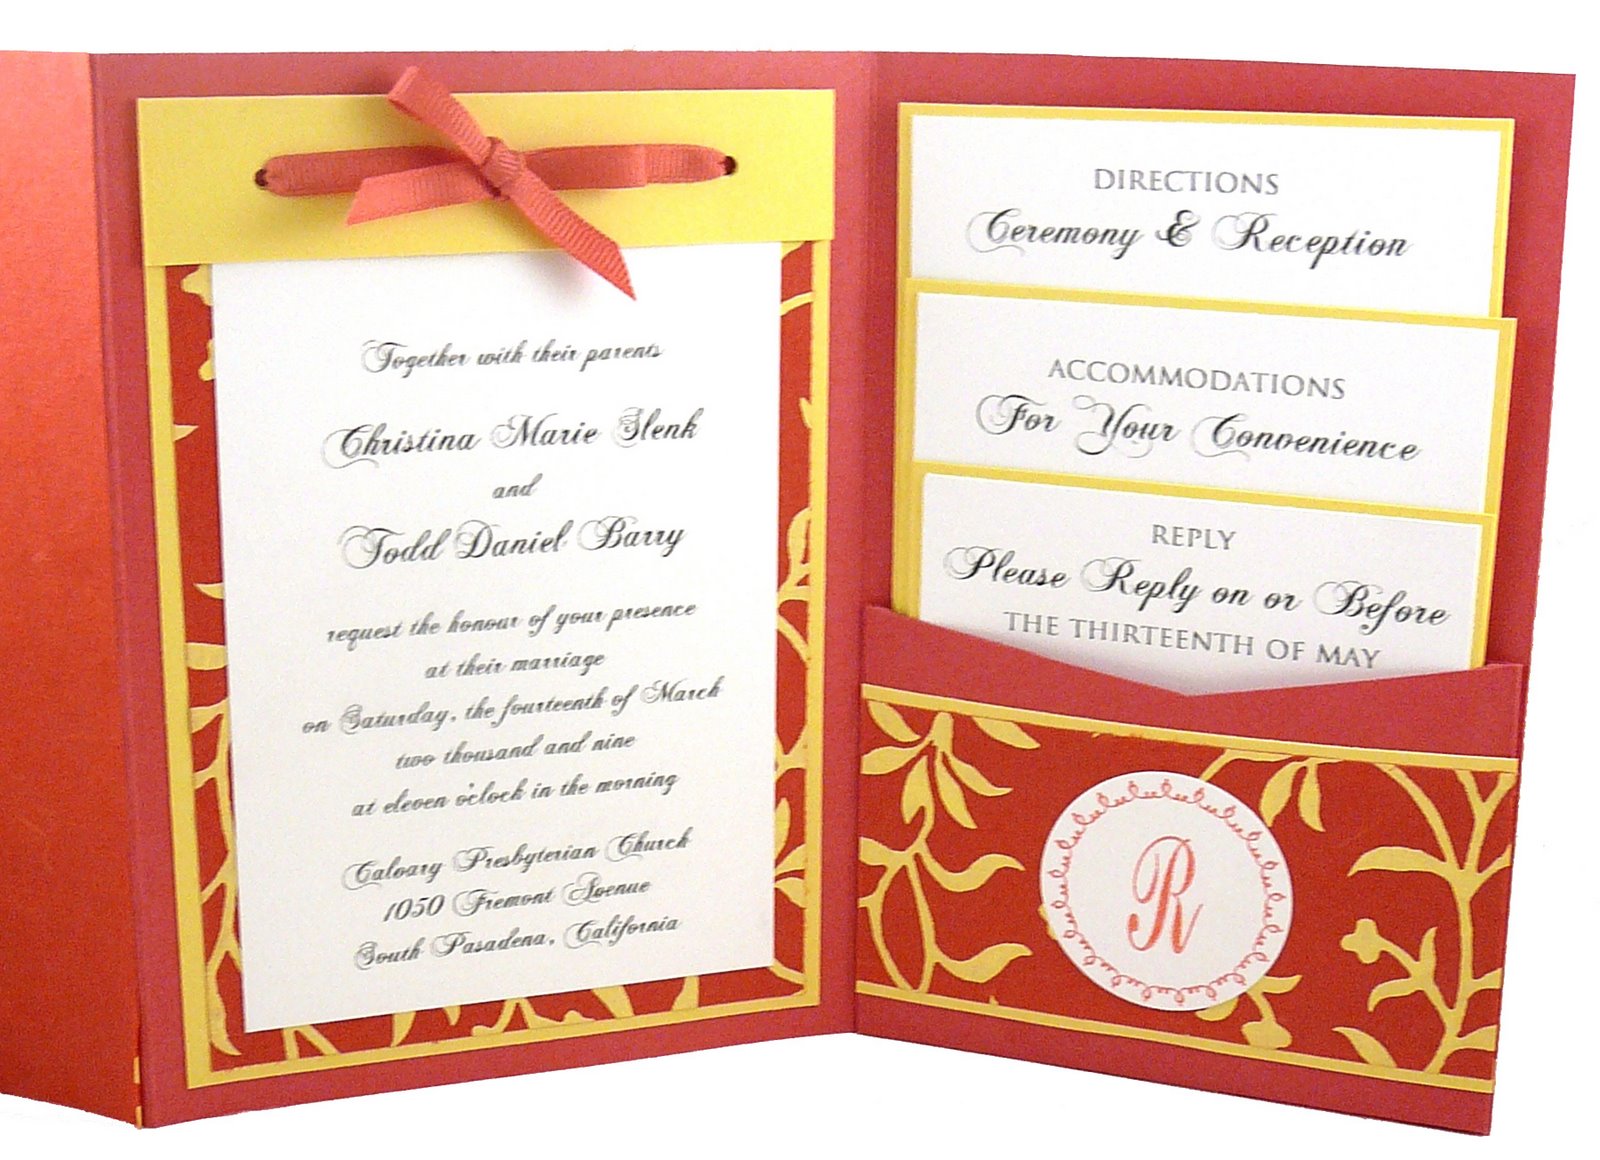 Together with their parents
Christina Marie Slenk
and
Todd Daniel Barry
request the honour of your presence
at their marriage
on Saturday, the fourteenth of March
two thousand and nine
at eleven o'clock in the morning
Calvary Presbyterian Church
1050 Fremont Avenue
South Pasadena, California
DIRECTIONS
Ceremony & Reception
ACCOMMODATIONS
For Your Convenience
REPLY
Please Reply on or Before
THE THIRTEENTH OF MAY
R